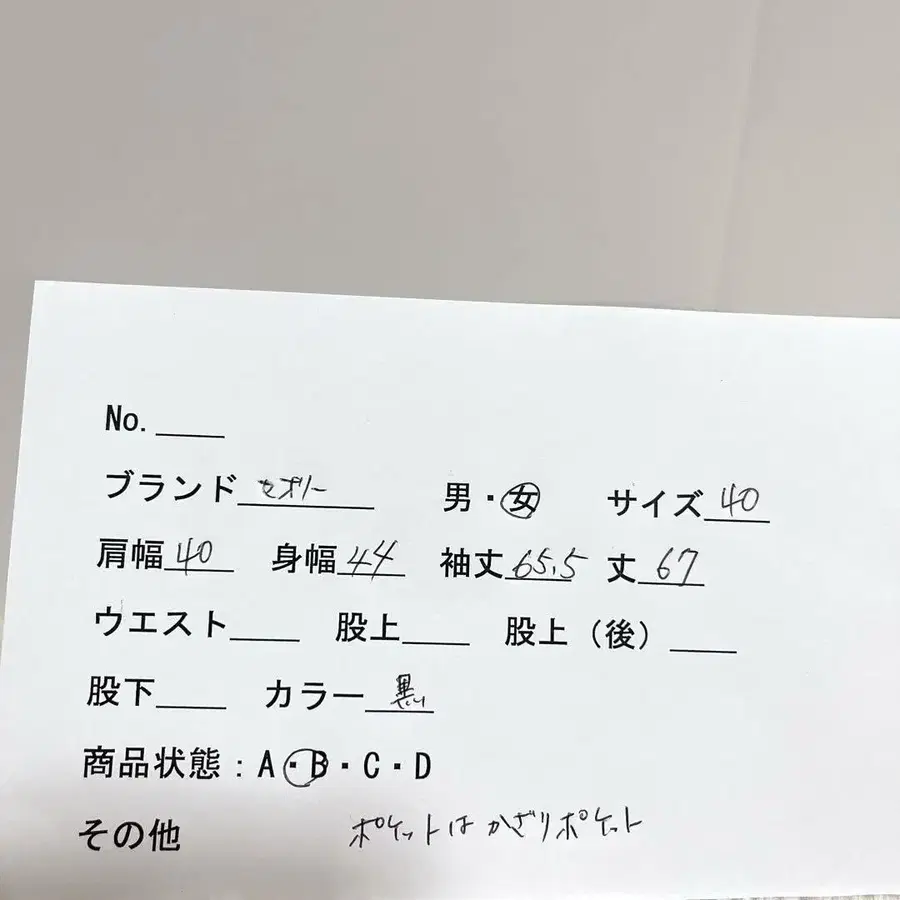 No.____
ブランド セオリー 男・女 サイズ 40
肩幅 40 身幅 44 袖丈 65.5 丈 67
ウエスト____ 股上____ 股上（後）____
股下____ カラー 黒
商品状態：A・B・C・D
その他 ポケットは かざりポケット